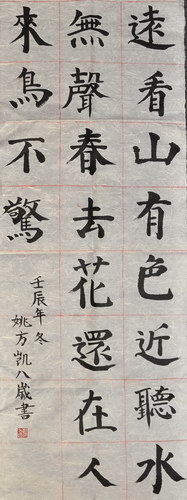 遠看山有色近聽水
無聲春去花還在人
來鳥不驚
壬辰年冬
姚方凱八歲書